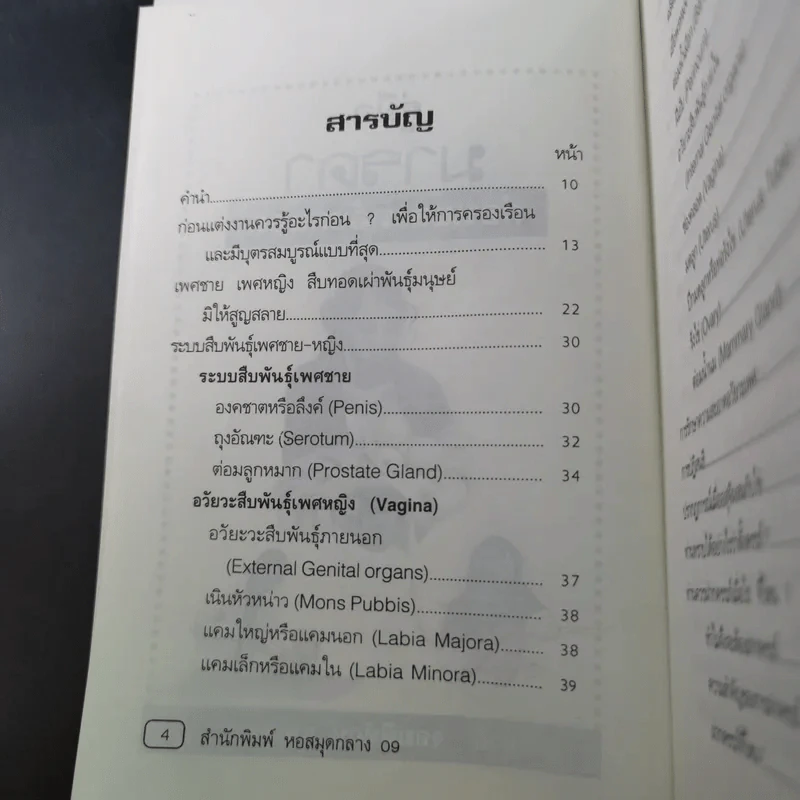 สารบัญ
หน้า
คำนำ 10
ก่อนแต่งงานควรรู้อะไรก่อน ? เพื่อให้การครองเรือน
และมีบุตรสมบูรณ์แบบที่สุด 13
เพศชาย เพศหญิง สืบทอดเผ่าพันธุ์มนุษย์
มิให้สูญสลาย 22
ระบบสืบพันธุ์เพศชาย-หญิง 30
ระบบสืบพันธุ์เพศชาย
องคชาตหรือลึงค์ (Penis) 30
ถุงอัณฑะ (Serotum) 32
ต่อมลูกหมาก (Prostate Gland) 34
อวัยวะสืบพันธุ์เพศหญิง (Vagina)
อวัยะวะสืบพันธุ์ภายนอก
(External Genital organs) 37
เนินหัวหน่าว (Mons Pubbis) 38
แคมใหญ่หรือแคมนอก (Labia Majora) 38
แคมเล็กหรือแคมใน (Labia Minora) 39
4 สำนักพิมพ์ หอสมุดกลาง 09
ช่องคลอด (Vagina)
มดลูก (Uterus)
รังไข่ (Ovary)
ต่อมน้ำนม (Mammary Gland)
การปฏิสนธิ